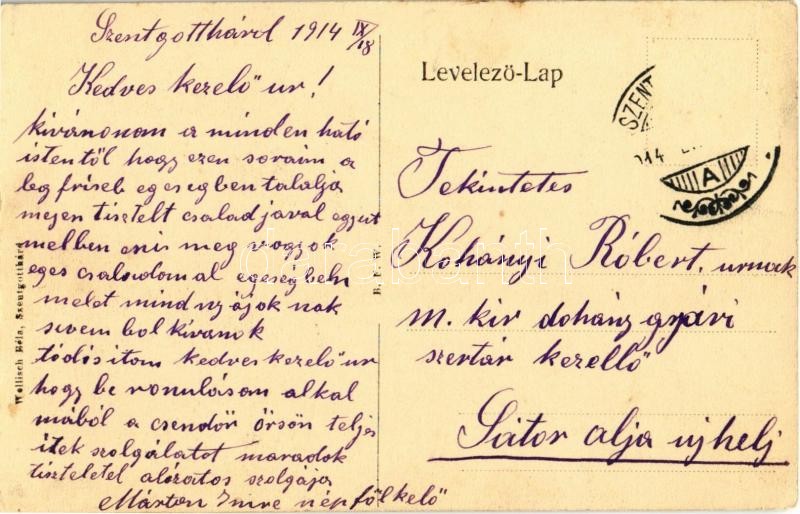 Szentgotthárd 1914 IX/18
Kedves kezelő ur!
kivánonom a minden ható
istentől hogy ezen soraim a
leg friseb egesegben talalja
mejen tisztelt csaladjaval egyut
melben enis meg vogyok
eges csaladomal egeségben
melet mind nyájok nak
sivem bol kivanok
tódisitom kedves kezelő ur
hogy be vonulásom alkal
mából a csendőr őrsön teljes
itek szolgálatot maradok
tiszteletel alázatos szolgája
Márton Imre népfölkelő
Wellisch Béla, Szentgotthárd
B. F. W.
darabanth
Levelező-Lap
SZENT
914
A
Tekintetes
Kohányi Róbert urnak
m. kir dohány gyári
szertár kezellő
Sátor alja ujhelj